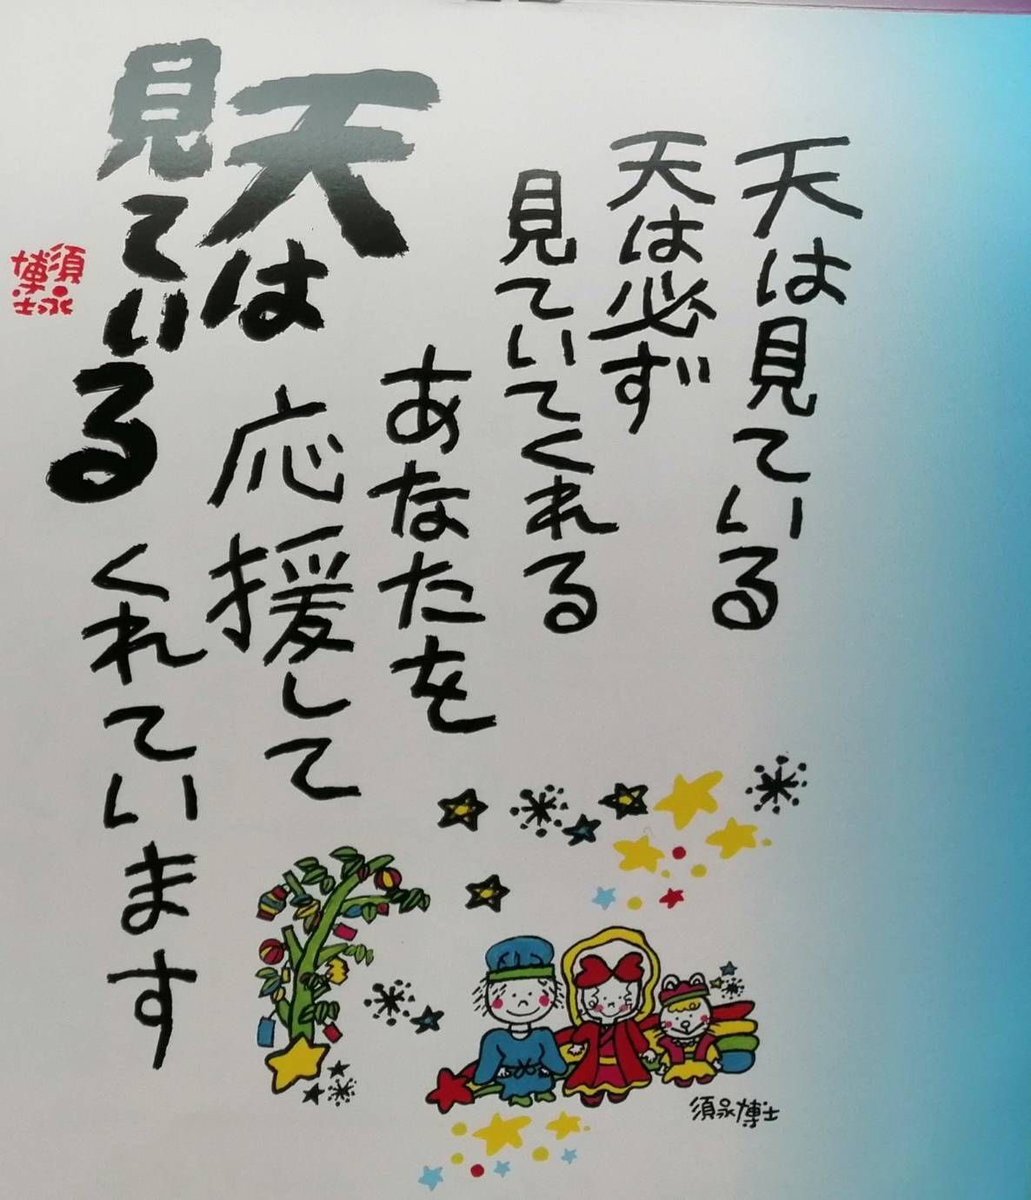 天は見ている
天は必ず
見ていてくれる
あなたを
応援して
くれています
天は
見ている
須永
博士
須永博士